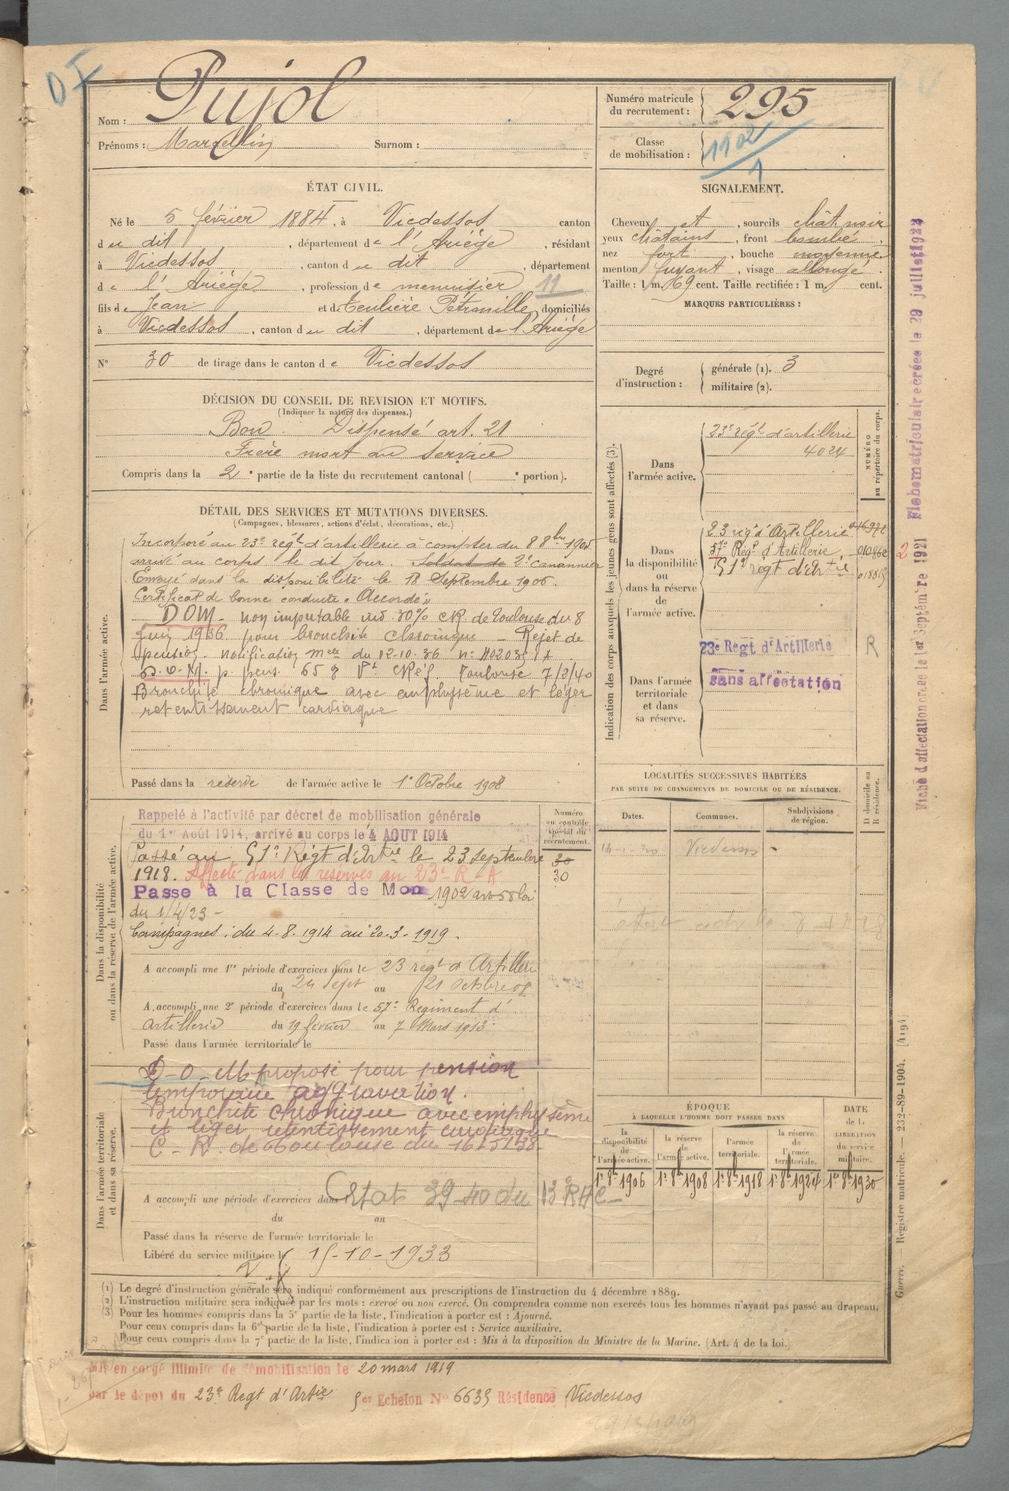 Nom : Pujol
Prénoms : Marcellin Surnom :
Numéro matricule du recrutement : 295
Classe de mobilisation : 1902
ÉTAT CIVIL.
Né le 5 février 1884, à Vicdessos canton
du dit, département de l'Ariège, résidant
à Vicdessos, canton du dit, département
de l'Ariège, profession de menuisier 11
fils de Jean et de Teulière Pétronille, domiciliés
à Vicdessos, canton du dit, département de l'Ariège
N° 30 de tirage dans le canton de Vicdessos
SIGNALEMENT.
Cheveux et, sourcils chât noir
yeux châtains, front bombé,
nez fort, bouche moyenne
menton fuyant, visage allongé.
Taille : 1 m. 69 cent. Taille rectifiée : 1 m. cent.
MARQUES PARTICULIÈRES :
Degré d'instruction : générale (1). 3
militaire (2).
DÉCISION DU CONSEIL DE REVISION ET MOTIFS.
(Indiquer la nature des dispenses.)
Bon. Dispensé art. 21
Frère mort au service
Compris dans la 2e partie de la liste du recrutement cantonal ( e portion).
DÉTAIL DES SERVICES ET MUTATIONS DIVERSES.
(Campagnes, blessures, actions d'éclat, décorations, etc.)
Dans l'armée active.
Incorporé au 23e régt d'artillerie à compter du 8 8bre 1905
arrivé au corps le dit jour. Soldat de 2e canonnier
Envoyé dans la disponibilité le 18 Septembre 1906.
Certificat de bonne conduite « Accordé »
DOM. non imputable inv. 30% CR de Toulouse du 8
Juin 1936 pour bronchite chronique – Rejet de
pension. Notification mlle du 12.10.36
p. pens. 65 % Toulouse 7/3/40
Bronchite chronique avec emphysème et léger
retentissement cardiaque
Passé dans la réserve de l'armée active le 1er Octobre 1908
Indication des corps auxquels les jeunes gens sont affectés (3).
NUMÉRO au répertoire du corps.
Dans l'armée active.
23e régt d'artillerie
4024
Dans la disponibilité ou dans la réserve de l'armée active.
23 régt d'Artillerie
57e Regt d'Artillerie,
51e régt d'Artrie
Dans l'armée territoriale et dans sa réserve.
23e Regt d'Artillerie
sans affectation
R
LOCALITÉS SUCCESSIVES HABITÉES
PAR SUITE DE CHANGEMENTS DE DOMICILE OU DE RÉSIDENCE.
Dates. Communes. Subdivisions de région. D domicile ou R résidence.
Vicdessos
Dans la disponibilité ou dans la réserve de l'armée active.
Numéro au contrôle spécial du recrutement.
30
30
Rappelé à l'activité par décret de mobilisation générale
du 1er Août 1914, arrivé au corps le 4 AOUT 1914
Passé au 51e Régt d'Artrie le 23 Septembre
1918. Affecté dans les réserves au 23e R A
Passé à la Classe de Mon 1902 art 58 loi
du 1/4/23 -
Campagnes : du 4-8-1914 au 20-3-1919.
A accompli une 1re période d'exercices dans le 23 régt d'Artillerie
du 24 Sept au 21 Octobre
A accompli une 2e période d'exercices dans le 57e Régiment d'
Artillerie du 19 février au 7 Mars 1913
Passé dans l'armée territoriale le
Dans l'armée territoriale et dans sa réserve.
proposé pour pension
temporaire aggravation.
Bronchite chronique avec emphysème
et léger retentissement cardiaque
C. R. de Toulouse du
A accompli une période d'exercices dans
du au
Passé dans la réserve de l'armée territoriale le
Libéré du service militaire le 15-10-1933
ÉPOQUE
À LAQUELLE L'HOMME DOIT PASSER DANS
DATE de la LIBÉRATION du service militaire.
la disponibilité de l'armée active. la réserve de l'armée active. l'armée territoriale. la réserve de l'armée territoriale.
1er 8bre 1906 1er 8bre 1908 1er 8bre 1918 1er 8bre 1924 1er 8bre 1930
(1) Le degré d'instruction générale sera indiqué conformément aux prescriptions de l'instruction du 4 décembre 1889.
(2) L'instruction militaire sera indiquée par les mots : exercé ou non exercé. On comprendra comme non exercés tous les hommes n'ayant pas passé au drapeau.
(3) Pour les hommes compris dans la 5e partie de la liste, l'indication à porter est : Ajourné.
Pour ceux compris dans la 6e partie de la liste, l'indication à porter est : Service auxiliaire.
Pour ceux compris dans la 7e partie de la liste, l'indication à porter est : Mis à la disposition du Ministre de la Marine. (Art. 4 de la loi.)
Mis en congé illimité de démobilisation le 20 mars 1919
par le dépôt du 23e Regt d'Artie Echelon N° 6635 Résidence Vicdessos
Fiche matriculaire créée le 29 juillet 1922
Fiche d'affectation créée le 1er Septembre 1921
Guerre. Registre matricule. — 232-89-1904. [4194]